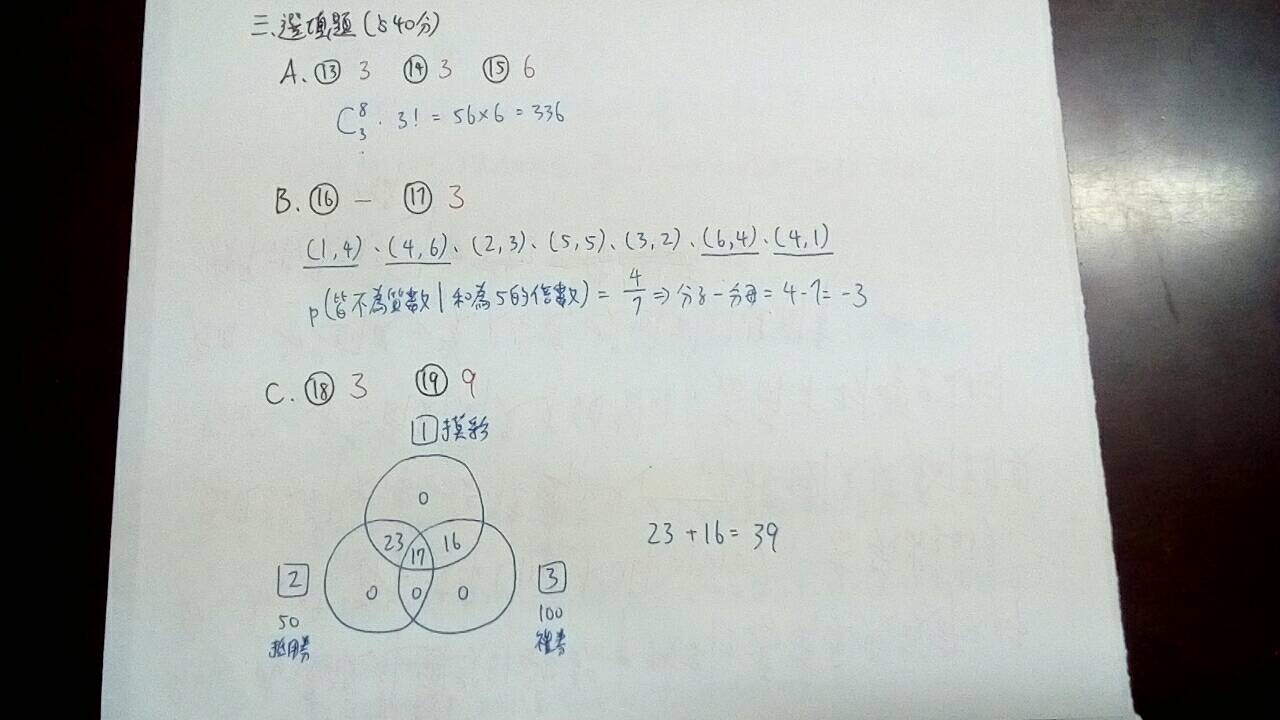 三、選填題(占40分)
A. ⑬ 3 ⑭ 3 ⑮ 6
C⁸₃ · 3! = 56×6 = 336
B. ⑯ — ⑰ 3
(1,4)、(4,6)、(2,3)、(5,5)、(3,2)、(6,4)、(4,1)
P(皆不為質數|和為5的倍數) = 4/7 ⇒ 分子-分母 = 4-7= -3
C. ⑱ 3 ⑲ 9
1 摸彩
0
23 17 16
0 0 0
2
50
抵用券
3
100
禮券
23+16= 39